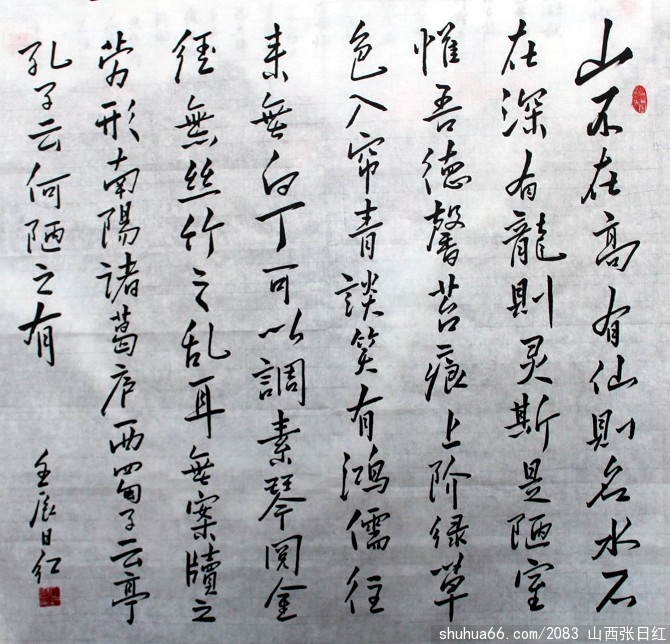 山不在高有仙則名水不
在深有龍則灵斯是陋室
惟吾德馨苔痕上阶绿草
色入帘青談笑有鴻儒往
来無白丁可以調素琴阅金
径無絲竹之乱耳無案牘之
劳形南陽諸葛庐西蜀子云亭
孔子云何陋之有
壬辰日红
shuhua66.com/2083 山西张日红